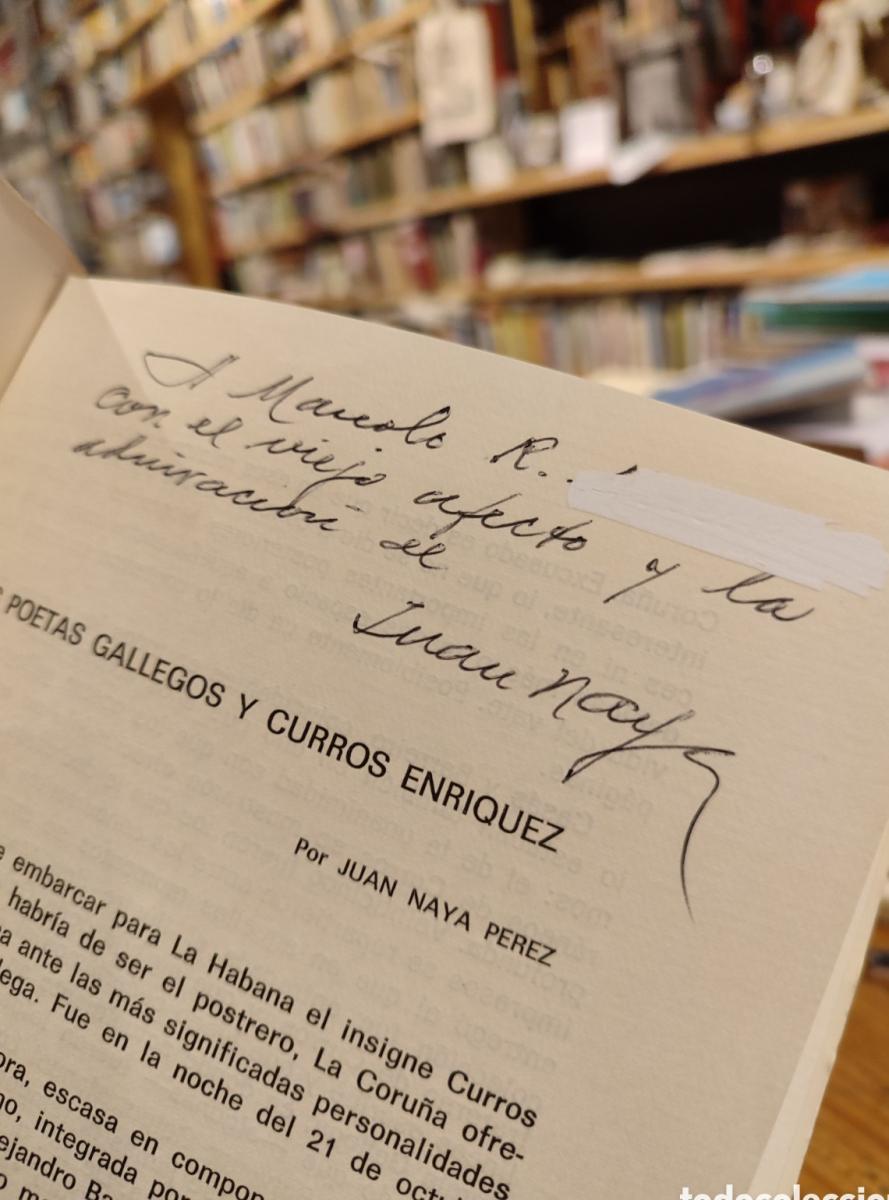 A Manolo R.
con el viejo afecto y la
admiración de
Juan Naya
POETAS GALLEGOS Y CURROS ENRIQUEZ
Por JUAN NAYA PEREZ
embarcar para La Habana el insigne Curros
habría de ser el postrero, La Coruña ofre-
ante las más significadas personalidades
lega. Fue en la noche del 21 de octu
ora, escasa en compon
no, integrada por
ejandro Ba
todocoleccio